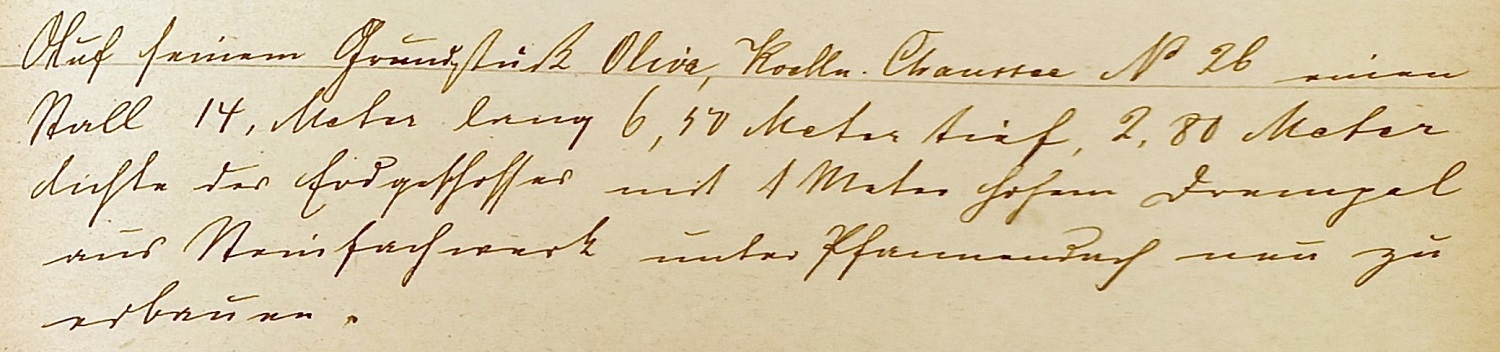 Auf seinem Grundstück Oliva, Koelln. Chaussee No 26 einen
Stall 14, Meter lang 6,50 Meter tief, 2,80 Meter
lichte des Erdgeschosses mit 1 Meter hohem Drempel
aus Steinfachwerk unter Pfannendach neu zu
erbauen.